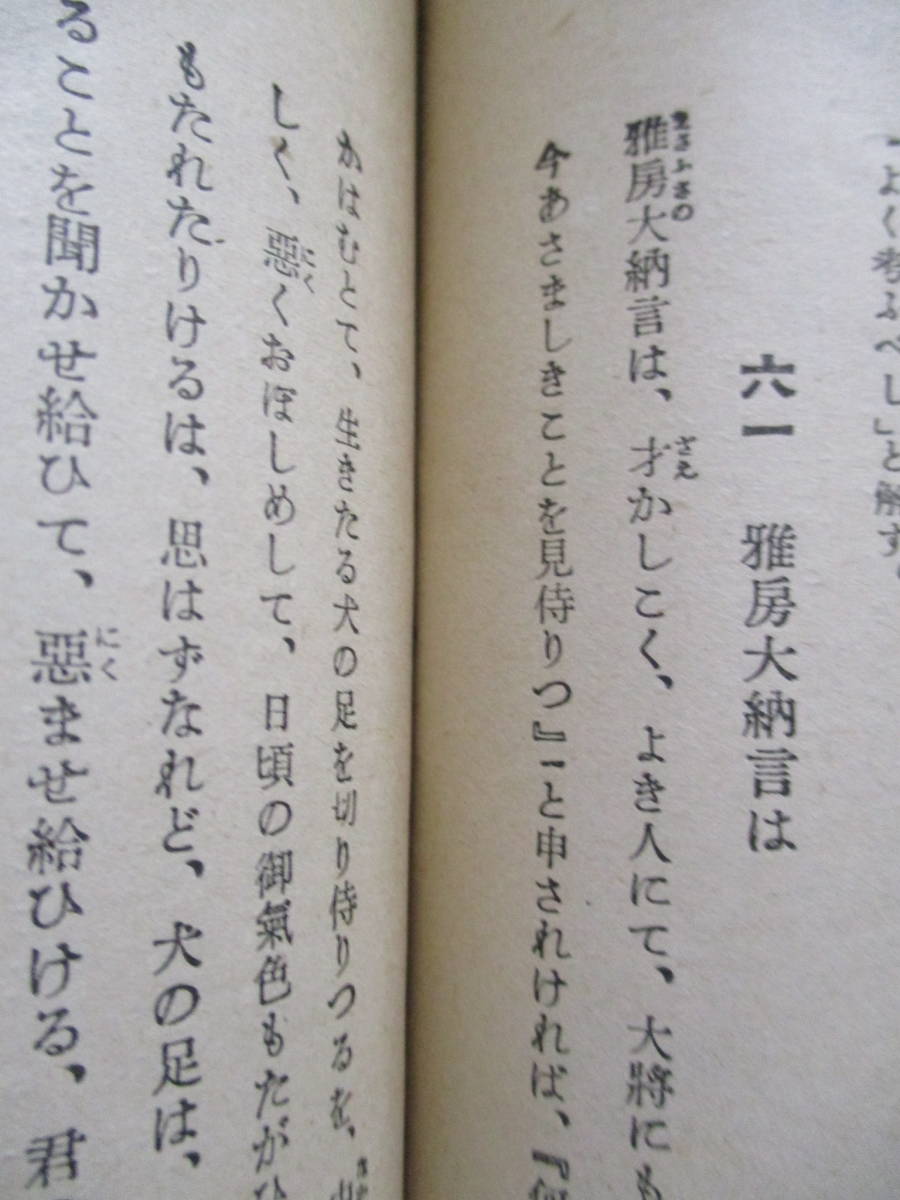 よく考ふべし」と解す。
六一 雅房大納言は
雅房大納言は、才かしこく、よき人にて、大將にも
今あさましきことを見侍りつ』―と申されければ、『何
かはむとて、生きたる犬の足を切り侍りつるを、
しく、惡くおぼしめして、日頃の御氣色もたがひ
もたれたりけるは、思はずなれど、犬の足は、
ることを聞かせ給ひて、惡ませ給ひける、君